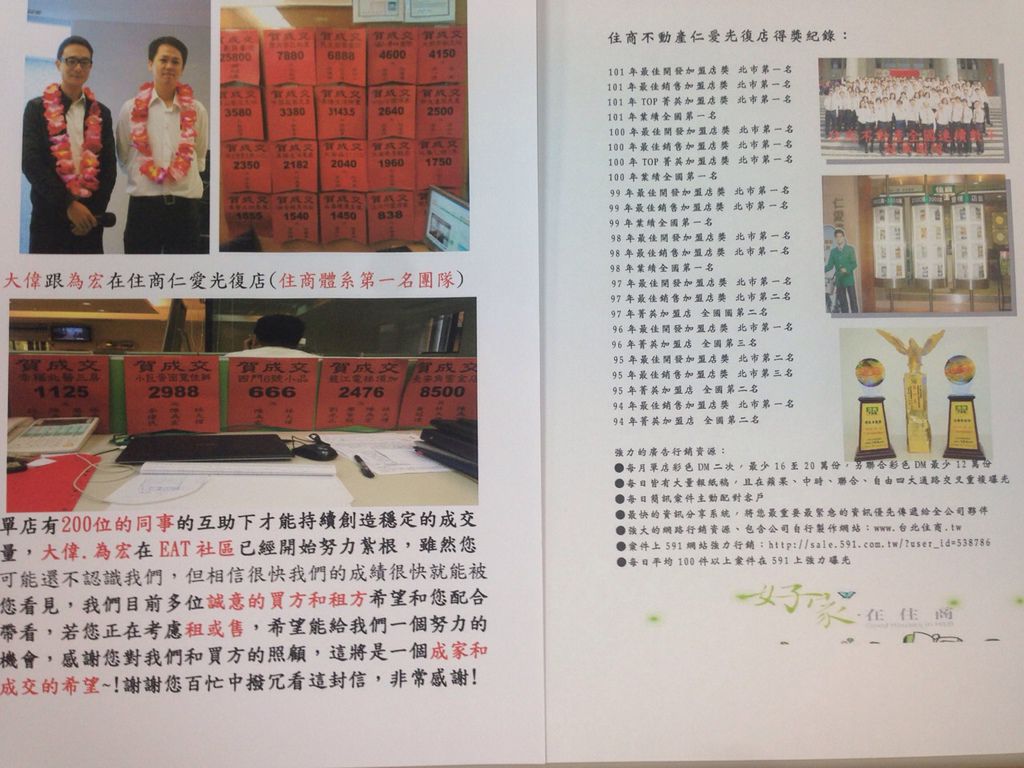 賀成交 賀成交 賀成交 賀成交
25800 7880 6888 4600 4150
賀成交 賀成交 賀成交 賀成交 賀成交
3580 3380 3143.5 2640 2500
賀成交 賀成交 賀成交 賀成交 賀成交
2350 2182 2040 1960 1750
賀成交 賀成交 賀成交 賀成交
1655 1540 1450 838
大偉跟為宏在住商仁愛光復店(住商體系第一名團隊)
賀成交 賀成交 賀成交 賀成交 賀成交
1125 2988 666 2476 8500
單店有200位的同事的互助下才能持續創造穩定的成交
量，大偉.為宏在EAT社區已經開始努力紮根，雖然您
可能還不認識我們，但相信很快我們的成績很快就能被
您看見，我們目前多位誠意的買方和租方希望和您配合
帶看，若您正在考慮租或售，希望能給我們一個努力的
機會，感謝您對我們和買方的照顧，這將是一個成家和
成交的希望~!謝謝您百忙中撥冗看這封信，非常感謝!
住商不動產仁愛光復店得獎紀錄：
101年最佳開發加盟店獎 北市第一名
101年最佳銷售加盟店獎 北市第一名
101年TOP菁英加盟店獎 北市第一名
101年業績全國第一名
100年最佳開發加盟店獎 北市第一名
100年最佳銷售加盟店獎 北市第一名
100年TOP菁英加盟店獎 北市第一名
100年業績全國第一名
99年最佳開發加盟店獎 北市第一名
99年最佳銷售加盟店獎 北市第一名
99年業績全國第一名
98年最佳開發加盟店獎 北市第一名
98年最佳銷售加盟店獎 北市第一名
98年業績全國第一名
97年最佳開發加盟店獎 北市第一名
97年最佳銷售加盟店獎 北市第二名
97年菁英加盟店 全國第二名
96年最佳開發加盟店獎 北市第一名
96年菁英加盟店 全國第三名
95年最佳開發加盟店獎 北市第二名
95年最佳銷售加盟店獎 北市第三名
95年菁英加盟店 全國第二名
94年最佳銷售加盟店獎 北市第一名
94年菁英加盟店 全國第二名
仁愛
強力的廣告行銷資源：
●每月單店彩色DM二次，最少16至20萬份，另聯合彩色DM最少12萬份
●每日皆有大量報紙稿，且在蘋果、中時、聯合、自由四大通路交叉重複曝光
●每日簡訊案件主動配對客戶
●最快的資訊分享系統，將您最重要最緊急的資訊優先傳遞給全公司夥伴
●強大的網路行銷資源、包含公司自行製作網站：www.台北住商.tw
●案件上591網站強力行銷：http://sale.591.com.tw/?user_id=538786
●每日平均100件以上案件在591上強力曝光
好家在住商